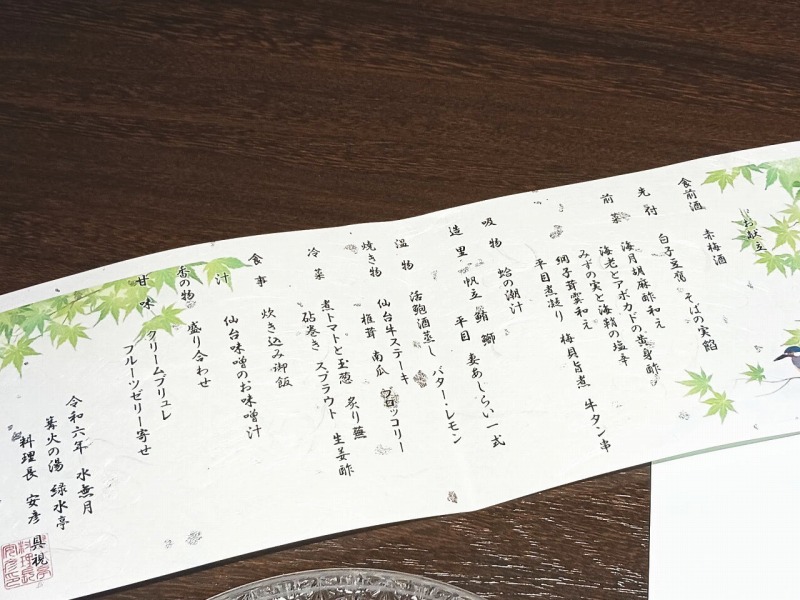 お献立
食前酒 赤梅酒
先付 白子豆腐 そばの実餡
前菜 海月胡麻酢和え
海老とアボカドの黄身酢
みずの実と海鞘の塩辛
網子茸雲和え 牛タン串
平目煮凝り 梅貝旨煮
吸物 蛤の潮汁
造里 帆立 鮪 鰤
平目 妻あしらい一式
温物 活鮑酒蒸し バター・レモン
焼き物 仙台牛ステーキ
椎茸 南瓜 ブロッコリー
冷菜 煮トマトと玉葱 炙り蕪
砧巻き スプラウト 生姜酢
食事 炊き込み御飯
汁 仙台味噌のお味噌汁
香の物 盛り合わせ
甘味 クリームブリュレ
フルーツゼリー寄せ
令和六年 水無月
篝火の湯 緑水亭
料理長 安彦 具視